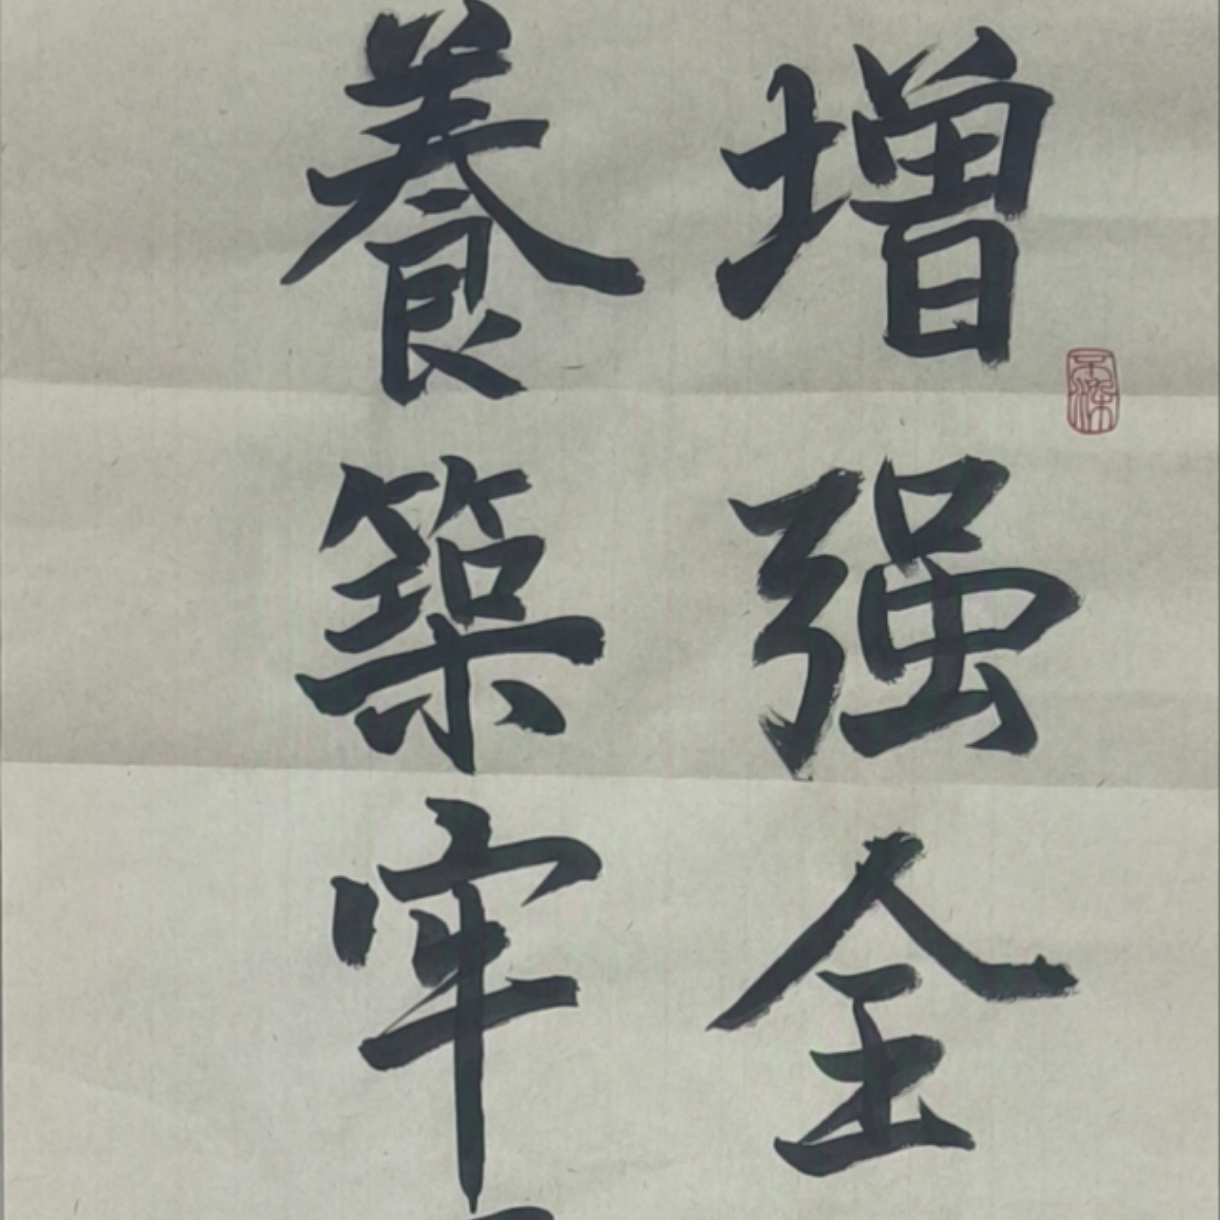 增强全
養築牢